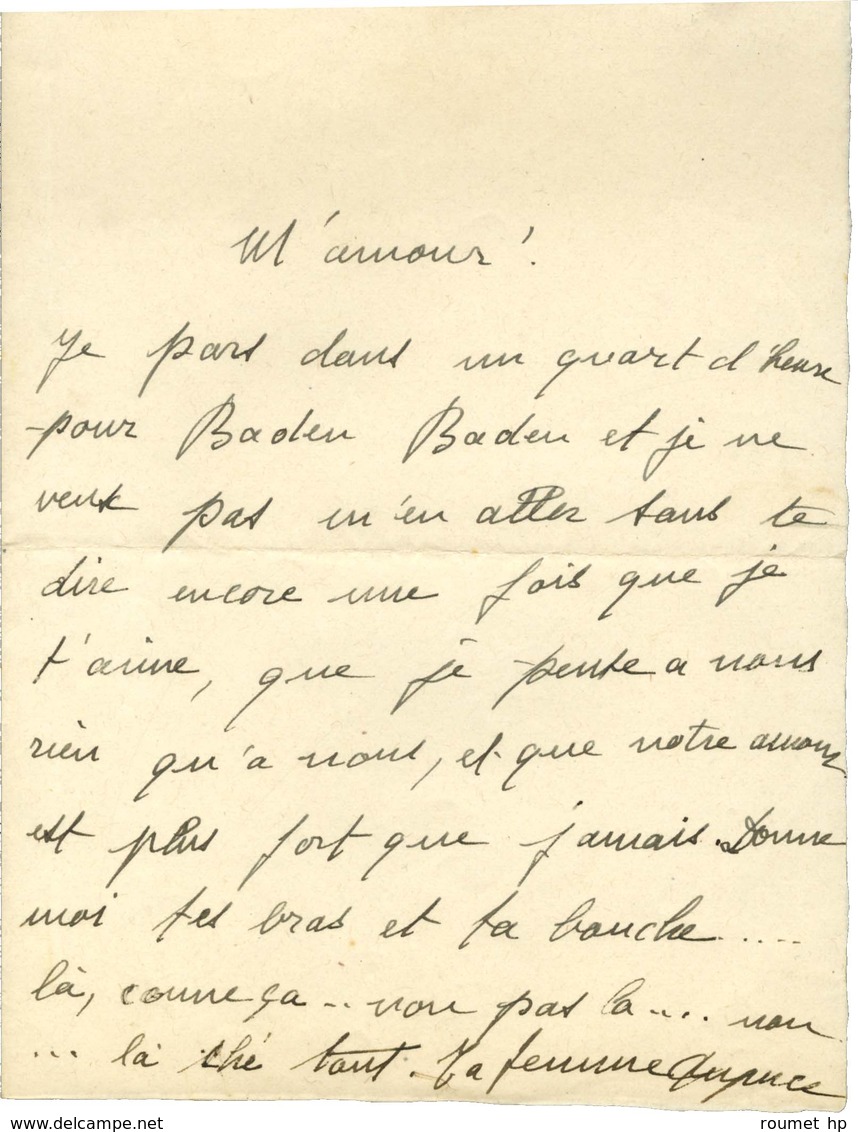 M'amour!
Je pars dans un quart d'heure
pour Baden Baden et je ne
veux pas m'en aller sans te
dire encore une fois que je
t'aime, que je pense a nous
rien qu'a nous, et que notre amour
est plus fort que jamais. Donne
moi tes bras et ta bouche....
là, comme ça.. non pas la.... non
... là thé tant. Ta femme
www.delcampe.net
roumet hp